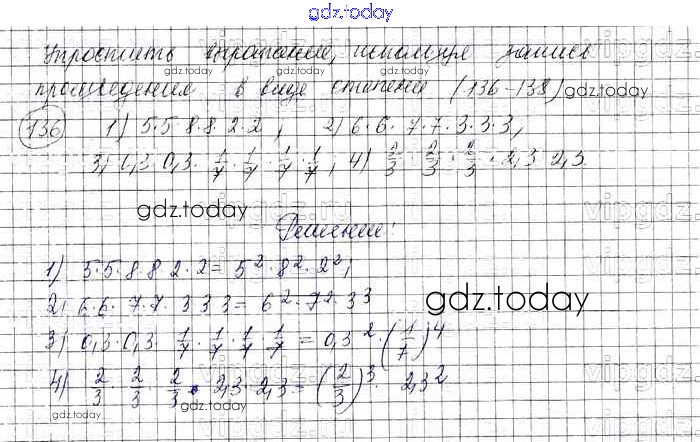 gdz.today
Упростить выражение, используя запись
произведения в виде степени (136-138) gdz.today
136 1) 5·5·8·8·2·2; 2) 6·6·7·7·3·3·3;
3) 0,3·0,3·1/7·1/7·1/7·1/7; 4) 2/3·2/3·2/3·2,3·2,3.
gdz.today
Решение:
1) 5·5·8·8·2·2=5²·8²·2²;
2) 6·6·7·7·3·3·3=6²·7²·3³ gdz.today
3) 0,3·0,3·1/7·1/7·1/7·1/7=0,3²·(1/7)⁴
4) 2/3·2/3·2/3·2,3·2,3=(2/3)³·2,3²
gdz.today